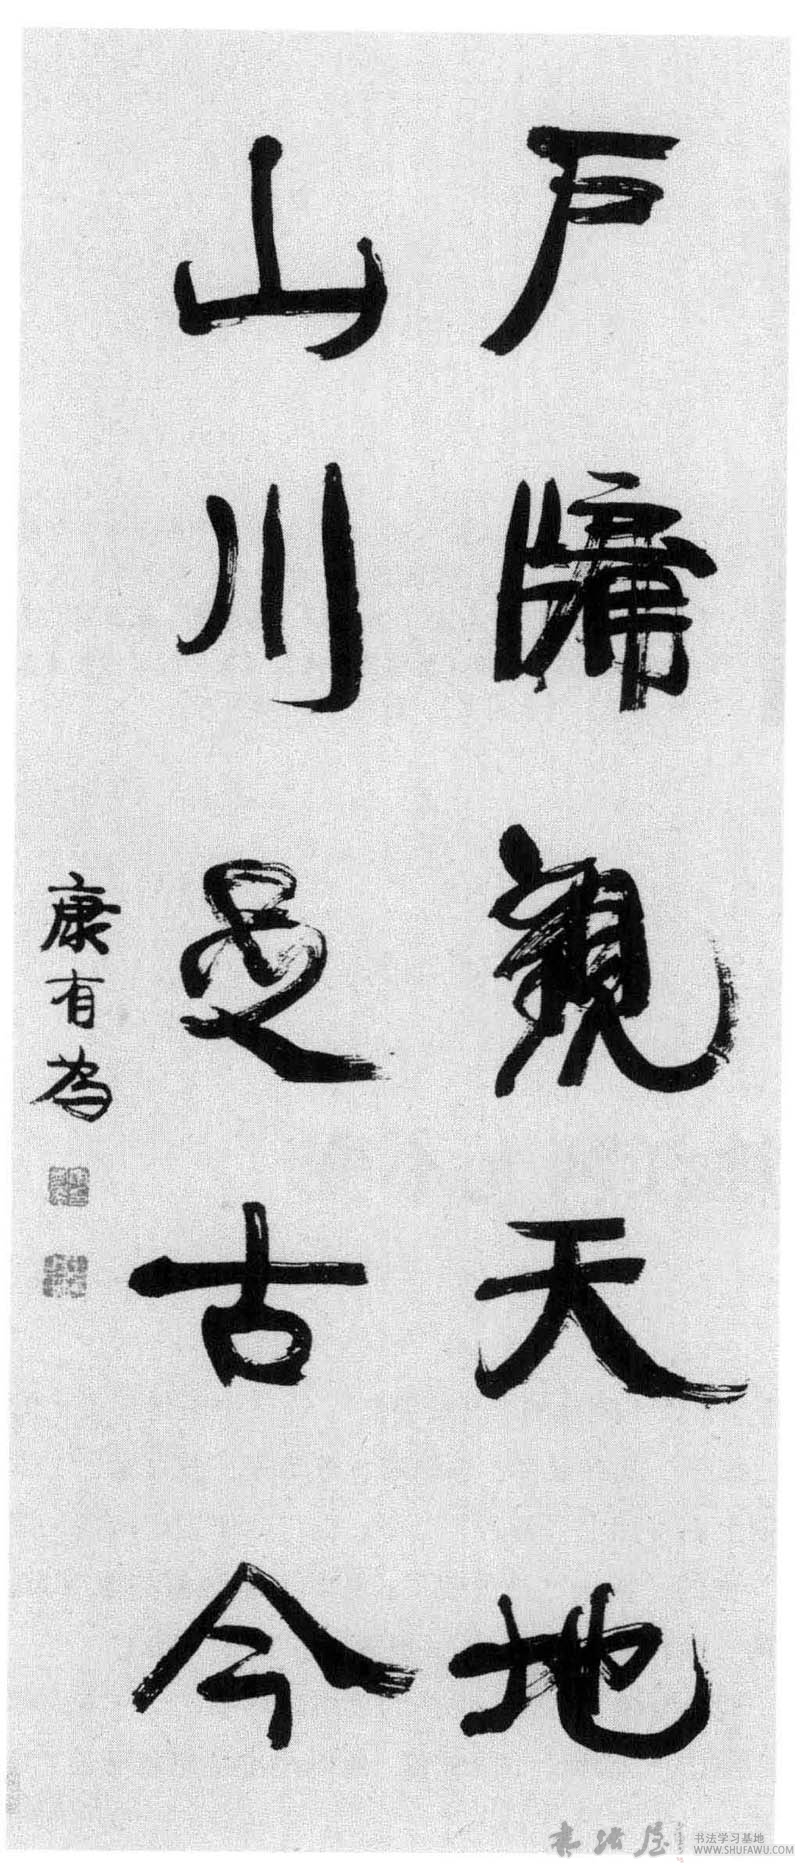 户牖觀天地
山川足古今
康有為
书法屋
书法学习基地
WWW.SHUFAWU.COM